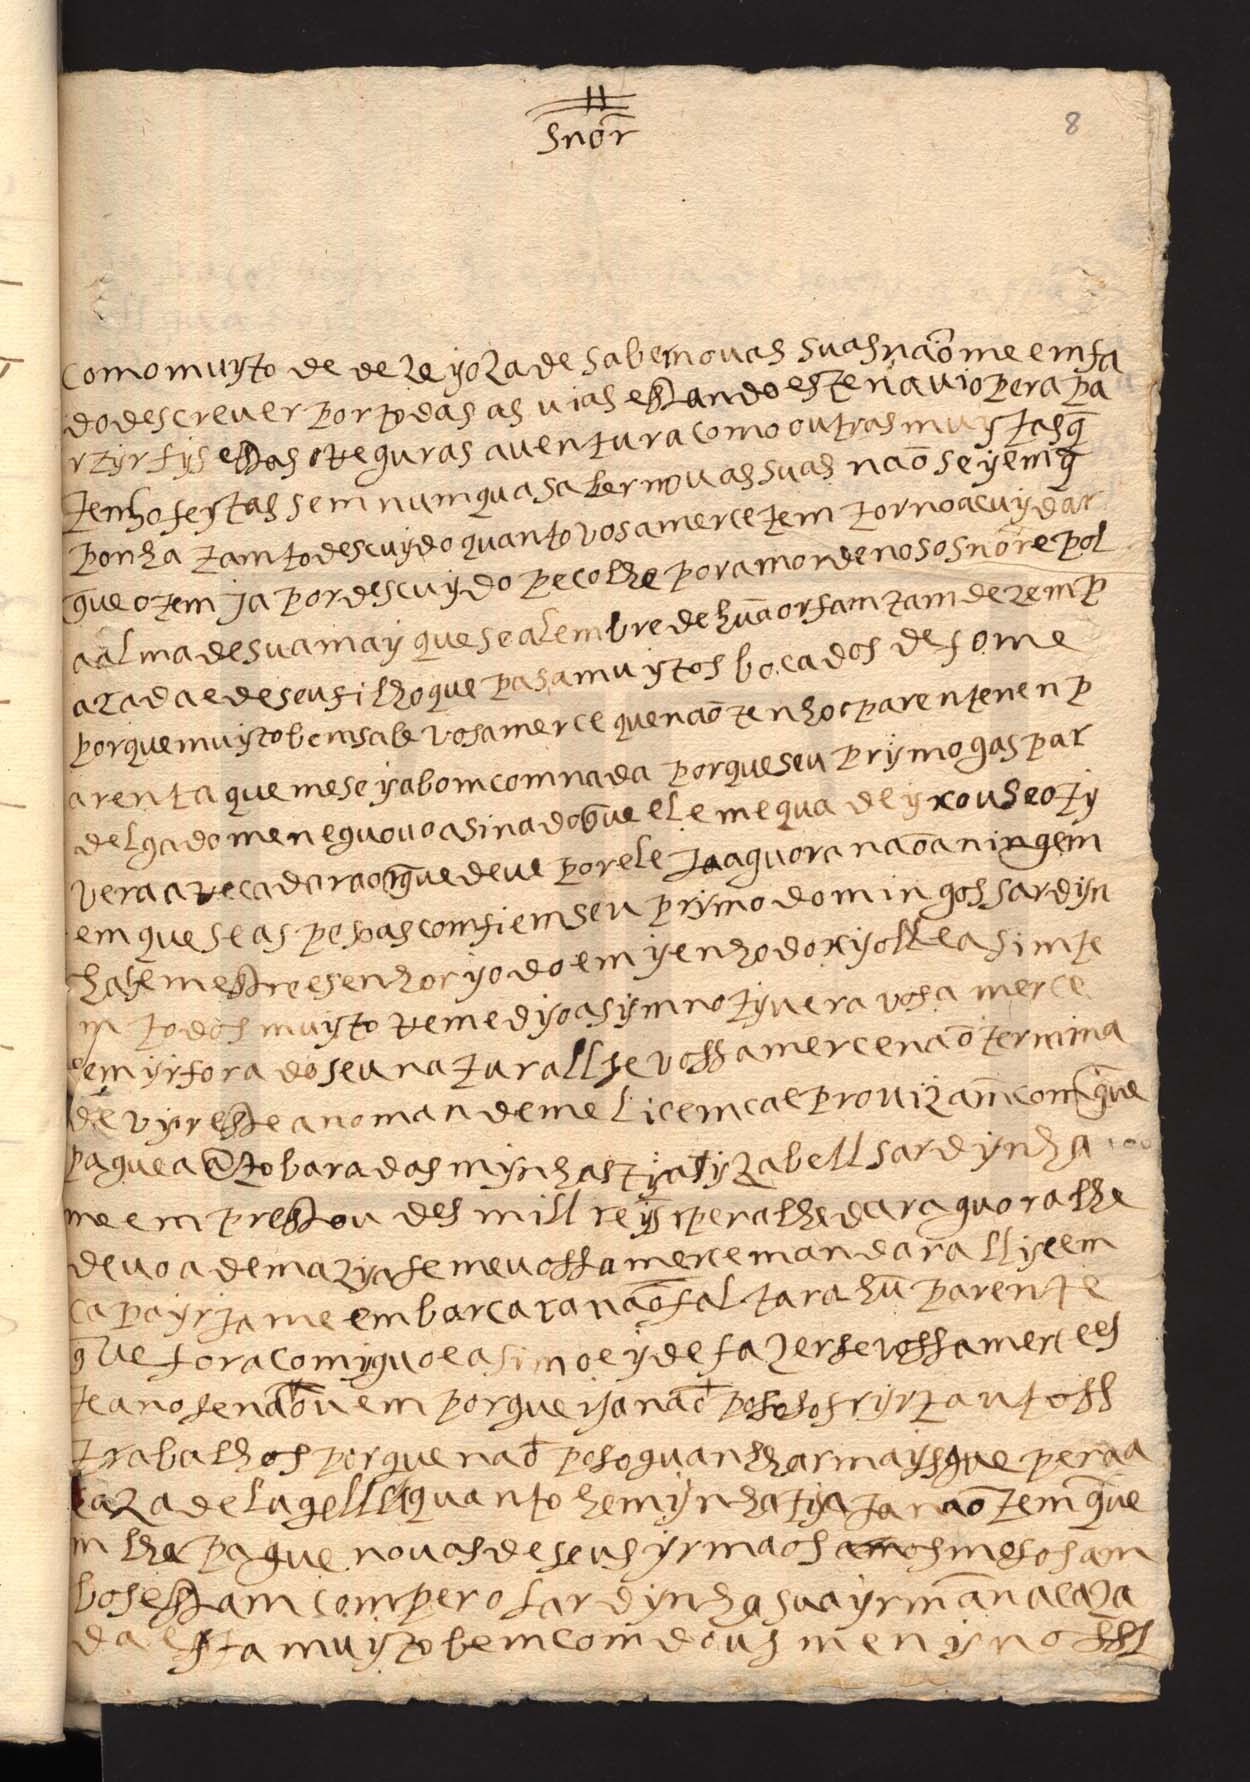 8
snõr
como muyto de dezeyoza de saber novas suas não me emfa
do descrever por todas as vias estando este navio pera pa
rtyr fys estas regras aventura como outras muytas q̃
tenho feytas sem numqua saber novas suas não sey em q̃
ponha tamto descuydo quanto vosa merce tem torno a cuydar
que o tem ja por descuydo peco lhe por amor de noso snõr e pol
a alma de sua may que se alembre de hũa orfam tam dezemp
arada e de seu filho que pasa muytos bocados de fome
porque muyto bem sabe vosa merce que não tenho parente nen p
arenta que me seya bom com nada porque seu prymo gaspar
delgado me neguou o asinado que ele me qua deyxou se o ty
vera arecadara o que deve por ele ja aguora não a ningem
em que se as pesoas comfiem seu prymo domingos sardyn
ha he mestre e senhor yo do emyenho do xyolle asim te
m todos muyto remedyo asym no tyvera vosa merce
em yr fora do seu naturall se vossa merce não termina
de vyr este ano mande me licemca e provizam com que
pague a antobara das mynhas tyas yzabell sardynha
me emprestou des mill reys pera lhe dar aguora lhe
devo a demazya se me vossa merce mandara llysem
ca pa yr ja me embarcara não faltara hũ parente
que fora comyguo e asim o ey de fazer se vossa merce es
te ano se não vem porque ya não poso sofryr tantoss
trabalhos porque não poso guanhar mays que pera a
caza de lugell e quanto he mynha tya ja não tem que
m lhe pague novas de seus yrmaos amos mesos am
bos estam com pero sardynha sua yrmãn a caza
da esta muyto bem com dous menynoss